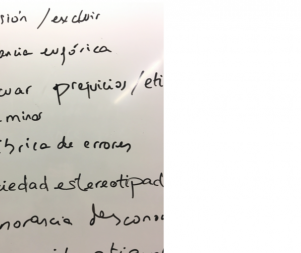 sión / excluir
encia eufórica
uar prejuicios/eti
minar
brica de errores
iedad estereotipad
norancia descono